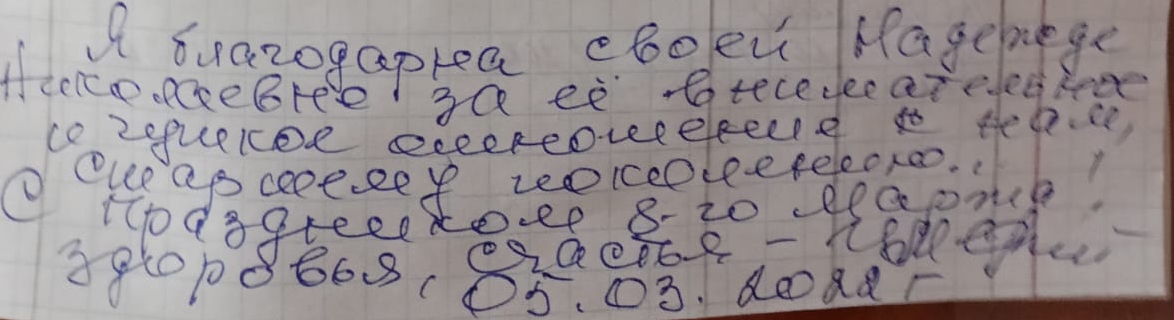 Я благодарна своей Надежде
Николаевне за её внимательное
и чуткое отношение к нам,
старшему поколению..
С Праздником 8-го Марта!
здоровья, счастья -
05.03.2022 г